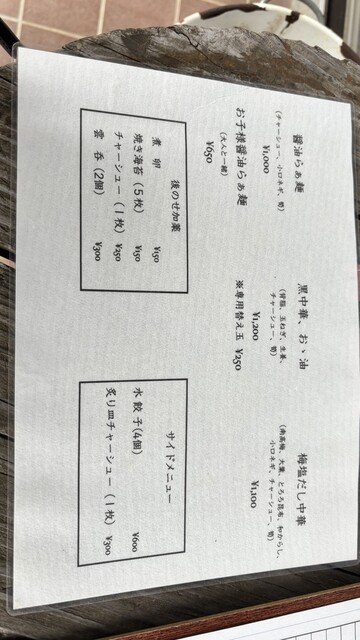 醤油らぁ麺
(チャーシュー、小口ネギ、筍)
¥1,000
お子様醤油らぁ麺
(大人と一緒)
¥650
黒中華、おゝ油
(背脂、玉ねぎ、生姜、
チャーシュー、筍)
¥1,200
※専用替え玉 ¥250
梅塩だし中華
(南高梅、大葉、とろろ昆布、和からし、
小口ネギ、チャーシュー、筍)
¥1,100
後のせ加薬
煮 卵 ¥150
焼き海苔(5枚) ¥150
チャーシュー(1枚) ¥250
雲 呑 (2個) ¥300
サイドメニュー
水 餃 子(4個) ¥600
炙り皿チャーシュー(1枚) ¥300